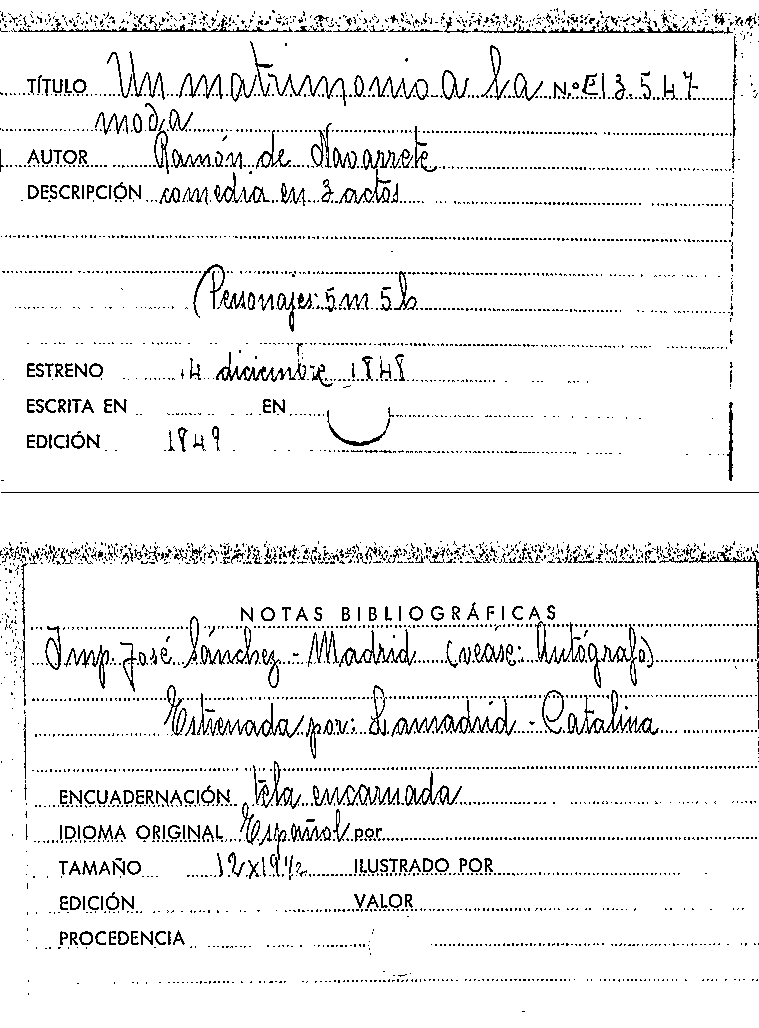 TÍTULO Un matrimonio a la N.º E13.547
moda
AUTOR Ramón de Navarrete
DESCRIPCIÓN comedia en 3 actos
(Personajes: 5m 5h
ESTRENO 4 diciembre 1848
ESCRITA EN EN
EDICIÓN 1849
NOTAS BIBLIOGRÁFICAS
Imp. José Sánchez - Madrid (vease: Autógrafo)
Estrenada por: Lamadrid - Catalina
ENCUADERNACIÓN tela encarnada
IDIOMA ORIGINAL Español por
TAMAÑO 12x19½ ILUSTRADO POR
EDICIÓN VALOR
PROCEDENCIA